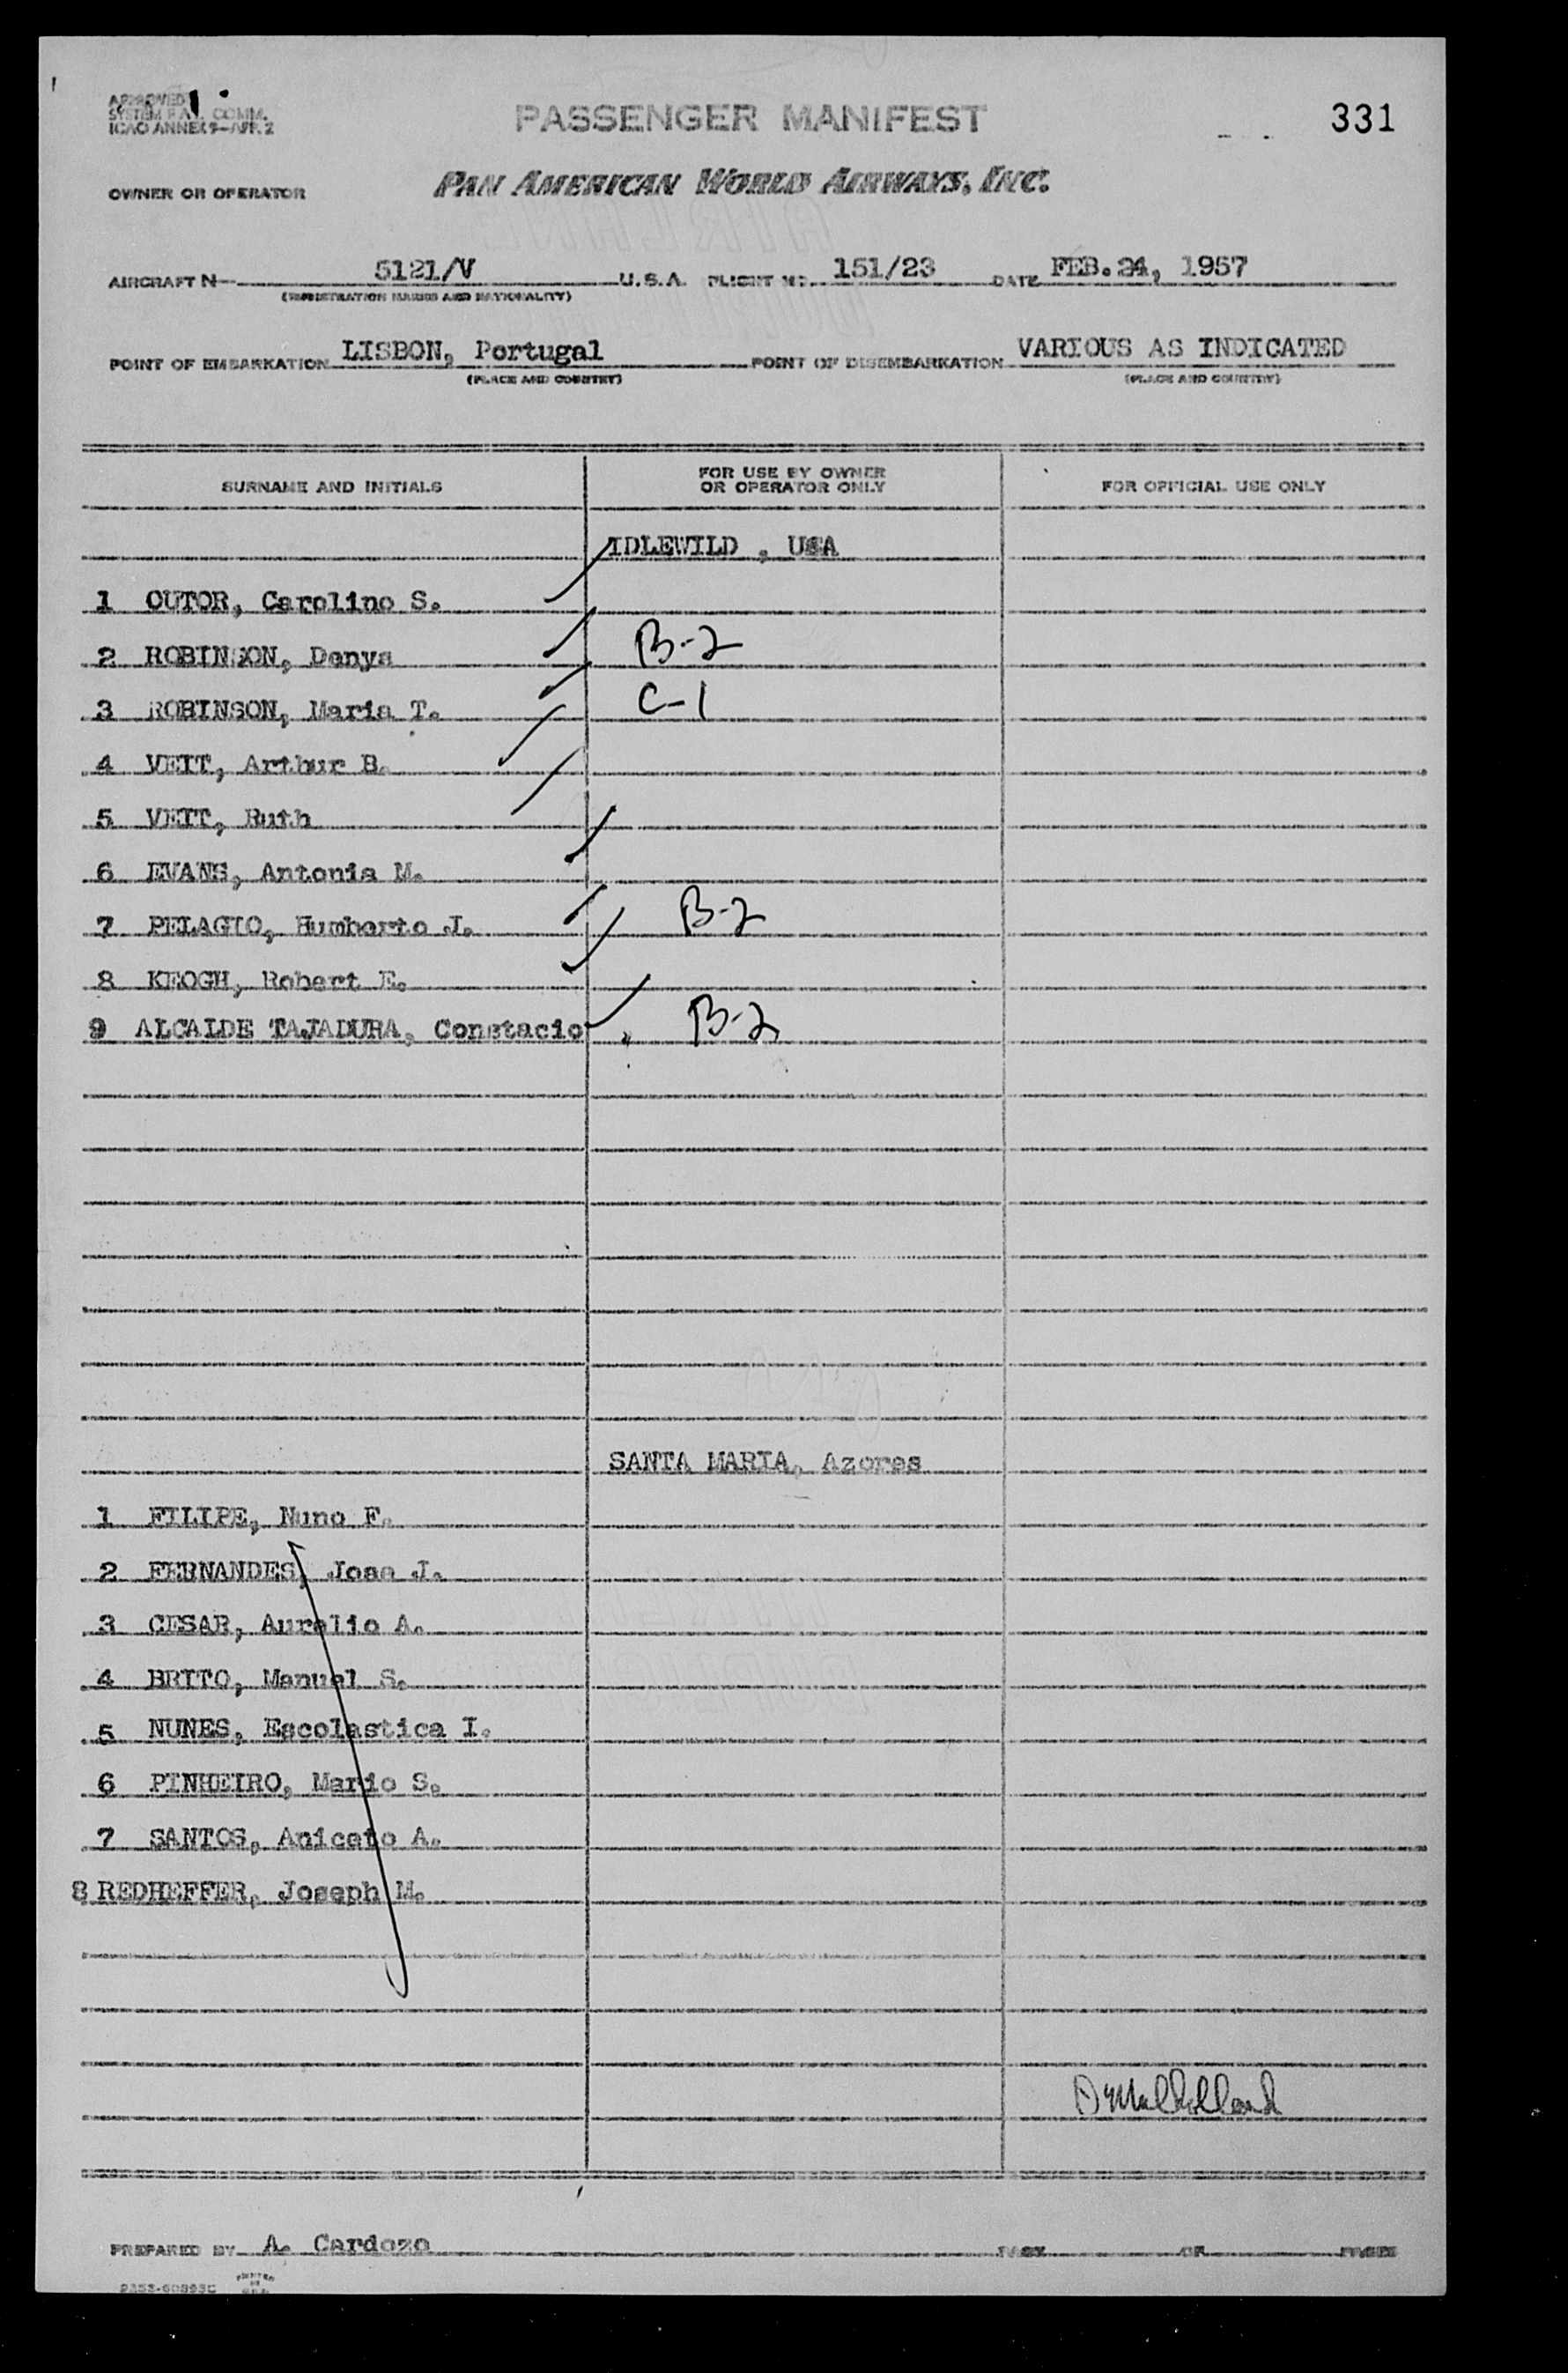 APPROVED
SYSTEM F.A.L. COMM.
ICAO ANNEX 9-APP. 2
PASSENGER MANIFEST
331
OWNER OR OPERATOR PAN AMERICAN WORLD AIRWAYS, INC.
AIRCRAFT N 5121/V U.S.A. FLIGHT NO. 151/23 DATE FEB. 24, 1957
(REGISTRATION MARKS AND NATIONALITY)
POINT OF EMBARKATION LISBON, Portugal POINT OF DISEMBARKATION VARIOUS AS INDICATED
(PLACE AND COUNTRY) (PLACE AND COUNTRY)
SURNAME AND INITIALS FOR USE BY OWNER OR OPERATOR ONLY FOR OFFICIAL USE ONLY
IDLEWILD , USA
1 OUTOR, Carolino S.
2 ROBINSON, Denys B-2
3 ROBINSON, Maria T. C-1
4 VEIT, Arthur B.
5 VEIT, Ruth
6 EVANS, Antonia M.
7 PELAGIO, Humberto J. B-2
8 KEOGH, Robert E.
9 ALCAIDE TAJADURA, Constacio B-2
SANTA MARIA, Azores
1 FILIPE, Nuno F.
2 FERNANDES, Jose J.
3 CESAR, Aurelio A.
4 BRITO, Manuel S.
5 NUNES, Escolastica I.
6 PINHEIRO, Mario S.
7 SANTOS, Aniceto A.
8 REDHEFFER, Joseph M.
PREPARED BY A. Cardozo PAGE OF PAGES
PRINTED
IN
U.S.A.